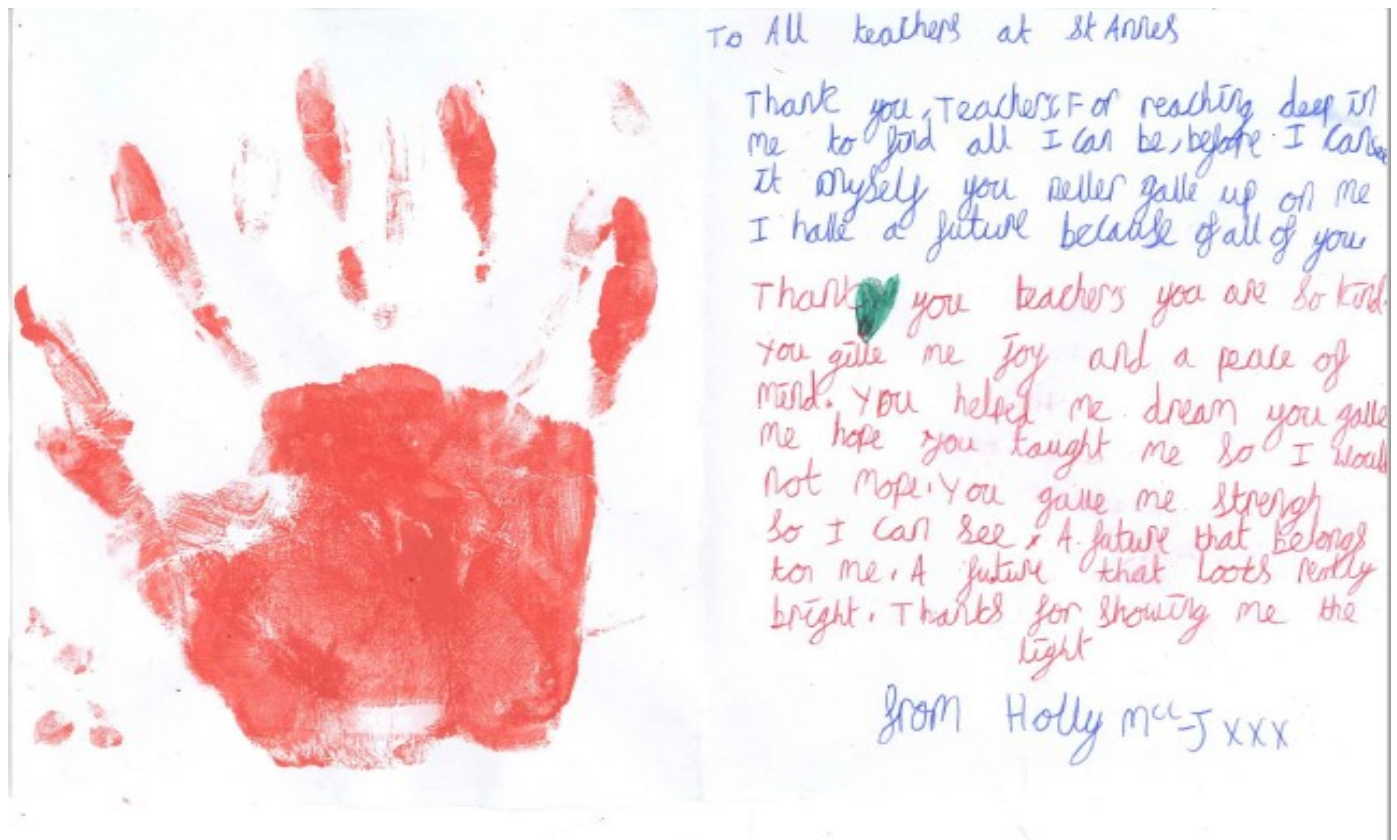 To All teachers at St Annes
Thank you, Teachers For reaching deep in
me to find all I can be, before I can see
it myself you never gave up on me
I have a future because of all of you
Thank you teachers you are so kind.
you give me joy and a peace of
mind. You helped me dream you gave
me hope you taught me so I would
not mope. You gave me strengh
so I can see. A future that belongs
to me. A future that looks really
bright. Thanks for showing me the
light
from Holly Mcc-J xxx